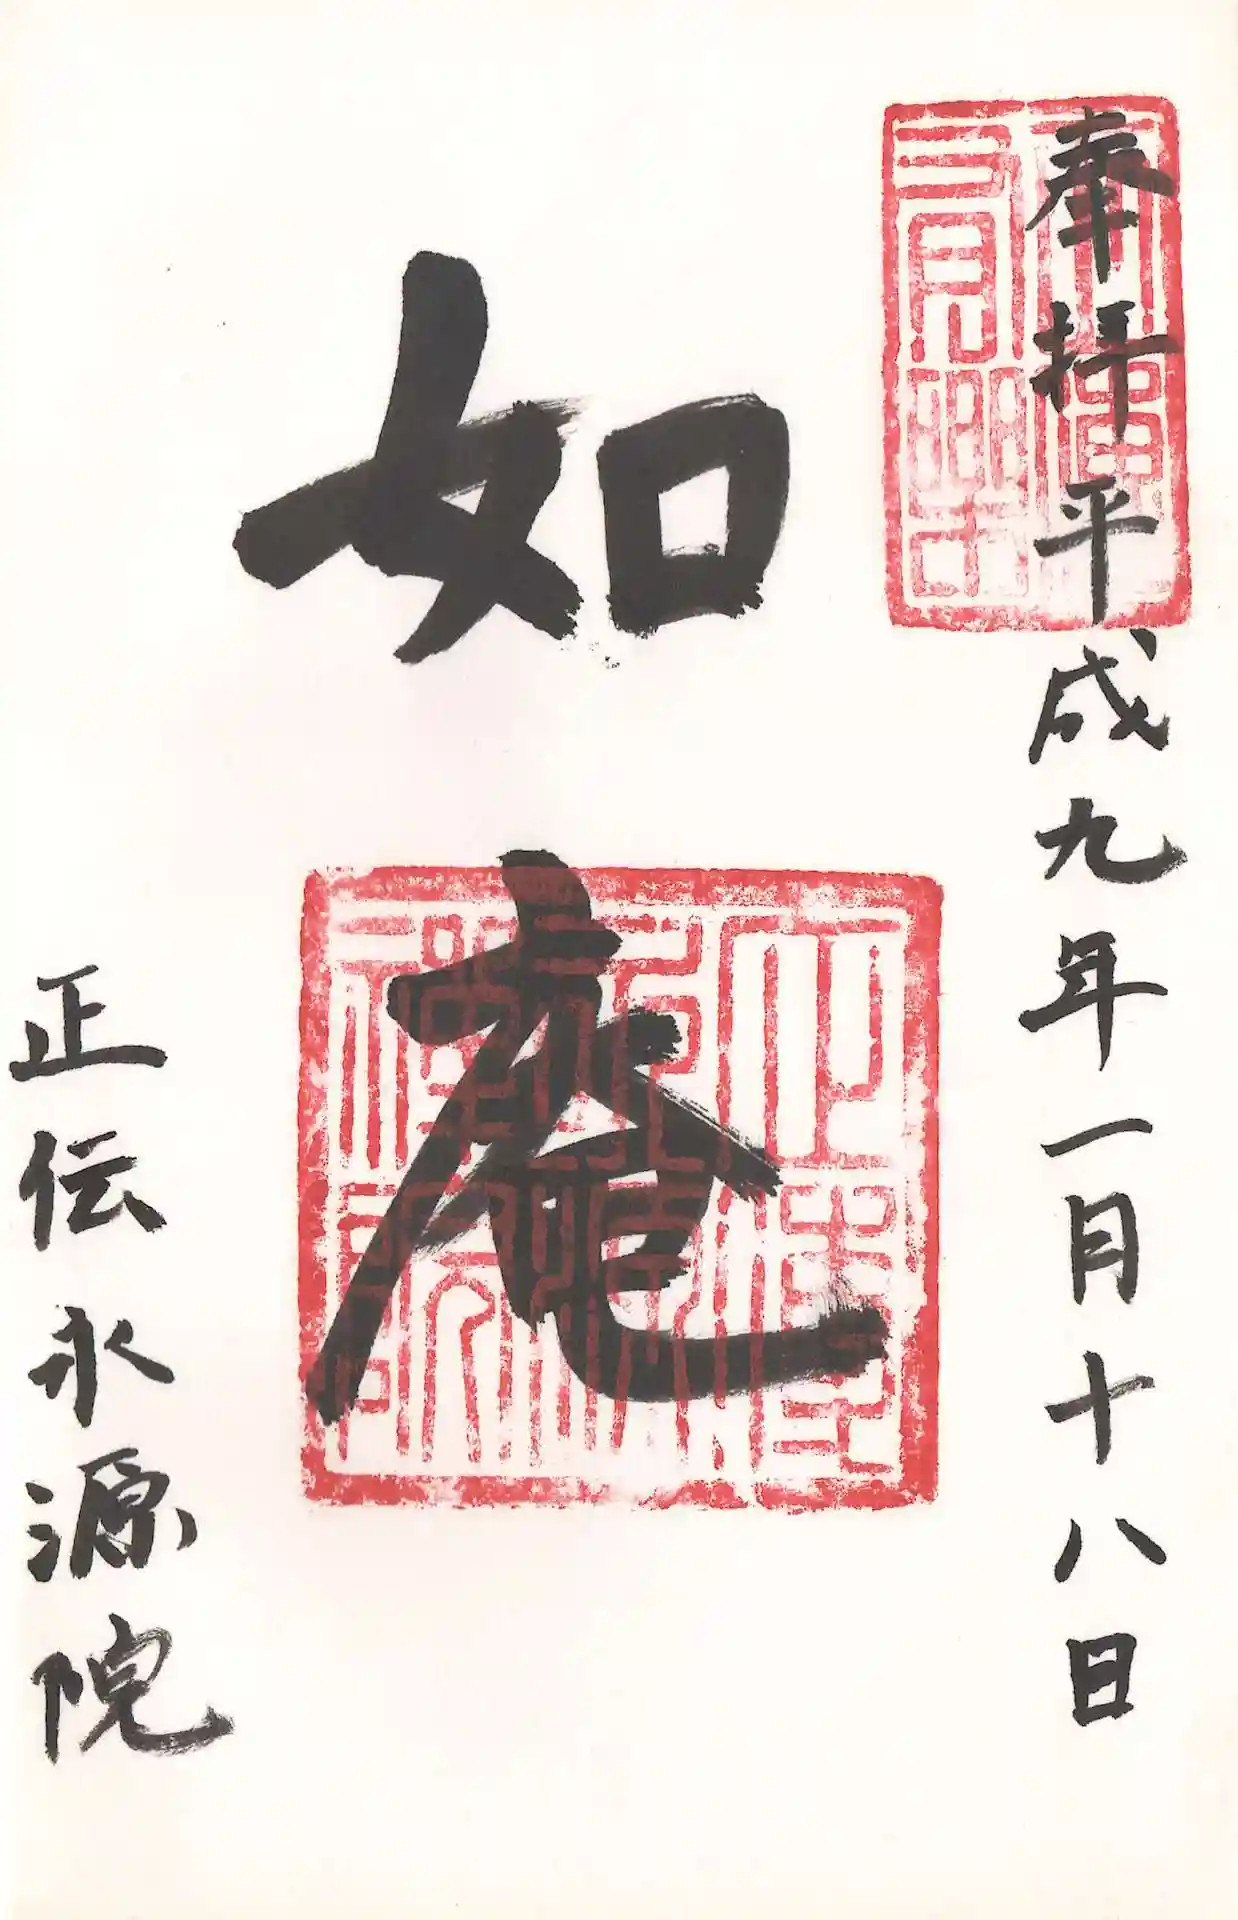 奉拝平成九年一月十八日
如庵
正伝永源院